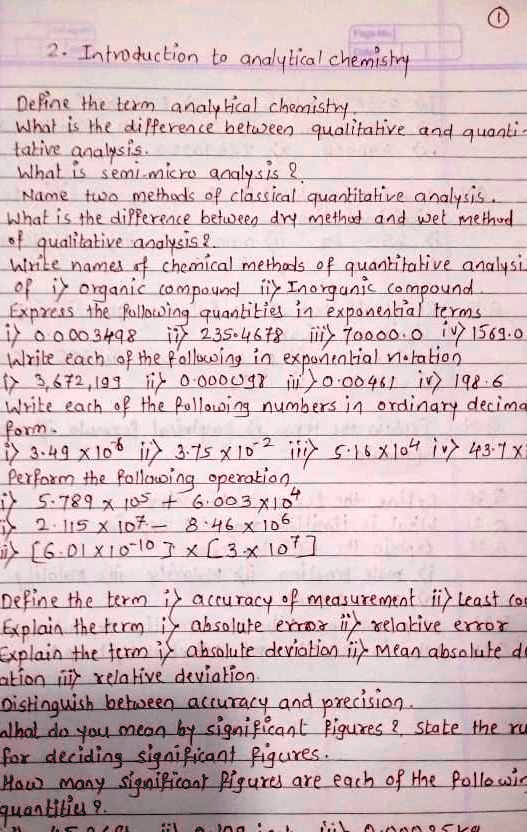 1
2. Introduction to analytical chemistry
Define the term analytical chemistry.
What is the difference between qualitative and quanti-
tative analysis.
What is semi-micro analysis ?
Name two methods of classical quantitative analysis.
What is the difference between dry method and wet method
of qualitative analysis ?
Write names of chemical methods of quantitative analysi
of i) organic compound ii) Inorganic compound.
Express the following quantities in exponential terms
i) 0.0003498 ii) 235.4678 iii) 70000.0 iv) 1569.0
Write each of the following in exponential notation
i) 3,672,199 ii) 0.000098 iii) 0.00461 iv) 198.6
Write each of the following numbers in ordinary decima
form.
i) 3.49 x 10⁻⁶ ii) 3.75 x 10⁻² iii) 5.16 x 10⁴ iv) 43.7 x
Perform the following operation
i) 5.789 x 10⁵ + 6.003 x 10⁴
i) 2.115 x 10⁷ - 8.46 x 10⁶
ii) [6.01 x 10⁻¹⁰] x [3 x 10⁷]
Define the term i) accuracy of measurement ii) Least cou
Explain the term i) absolute error ii) relative error
Explain the term i) absolute deviation ii) Mean absolute de
ation iii) relative deviation.
Distinguish between accuracy and precision.
What do you mean by significant figures ? State the ru
for deciding significant figures.
How many significant figures are each of the followin
quantities ?